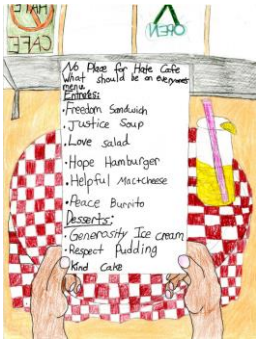 HATE
CAFE
OPEN
No Place for Hate Cafe
What should be on everyones
menu
Entrées:
•Freedom Sandwich
•Justice Soup
•Love salad
•Hope Hamburger
•Helpful Mac+cheese
•Peace Burrito
Desserts:
•Generosity Ice cream
•Respect Pudding
•Kind Cake